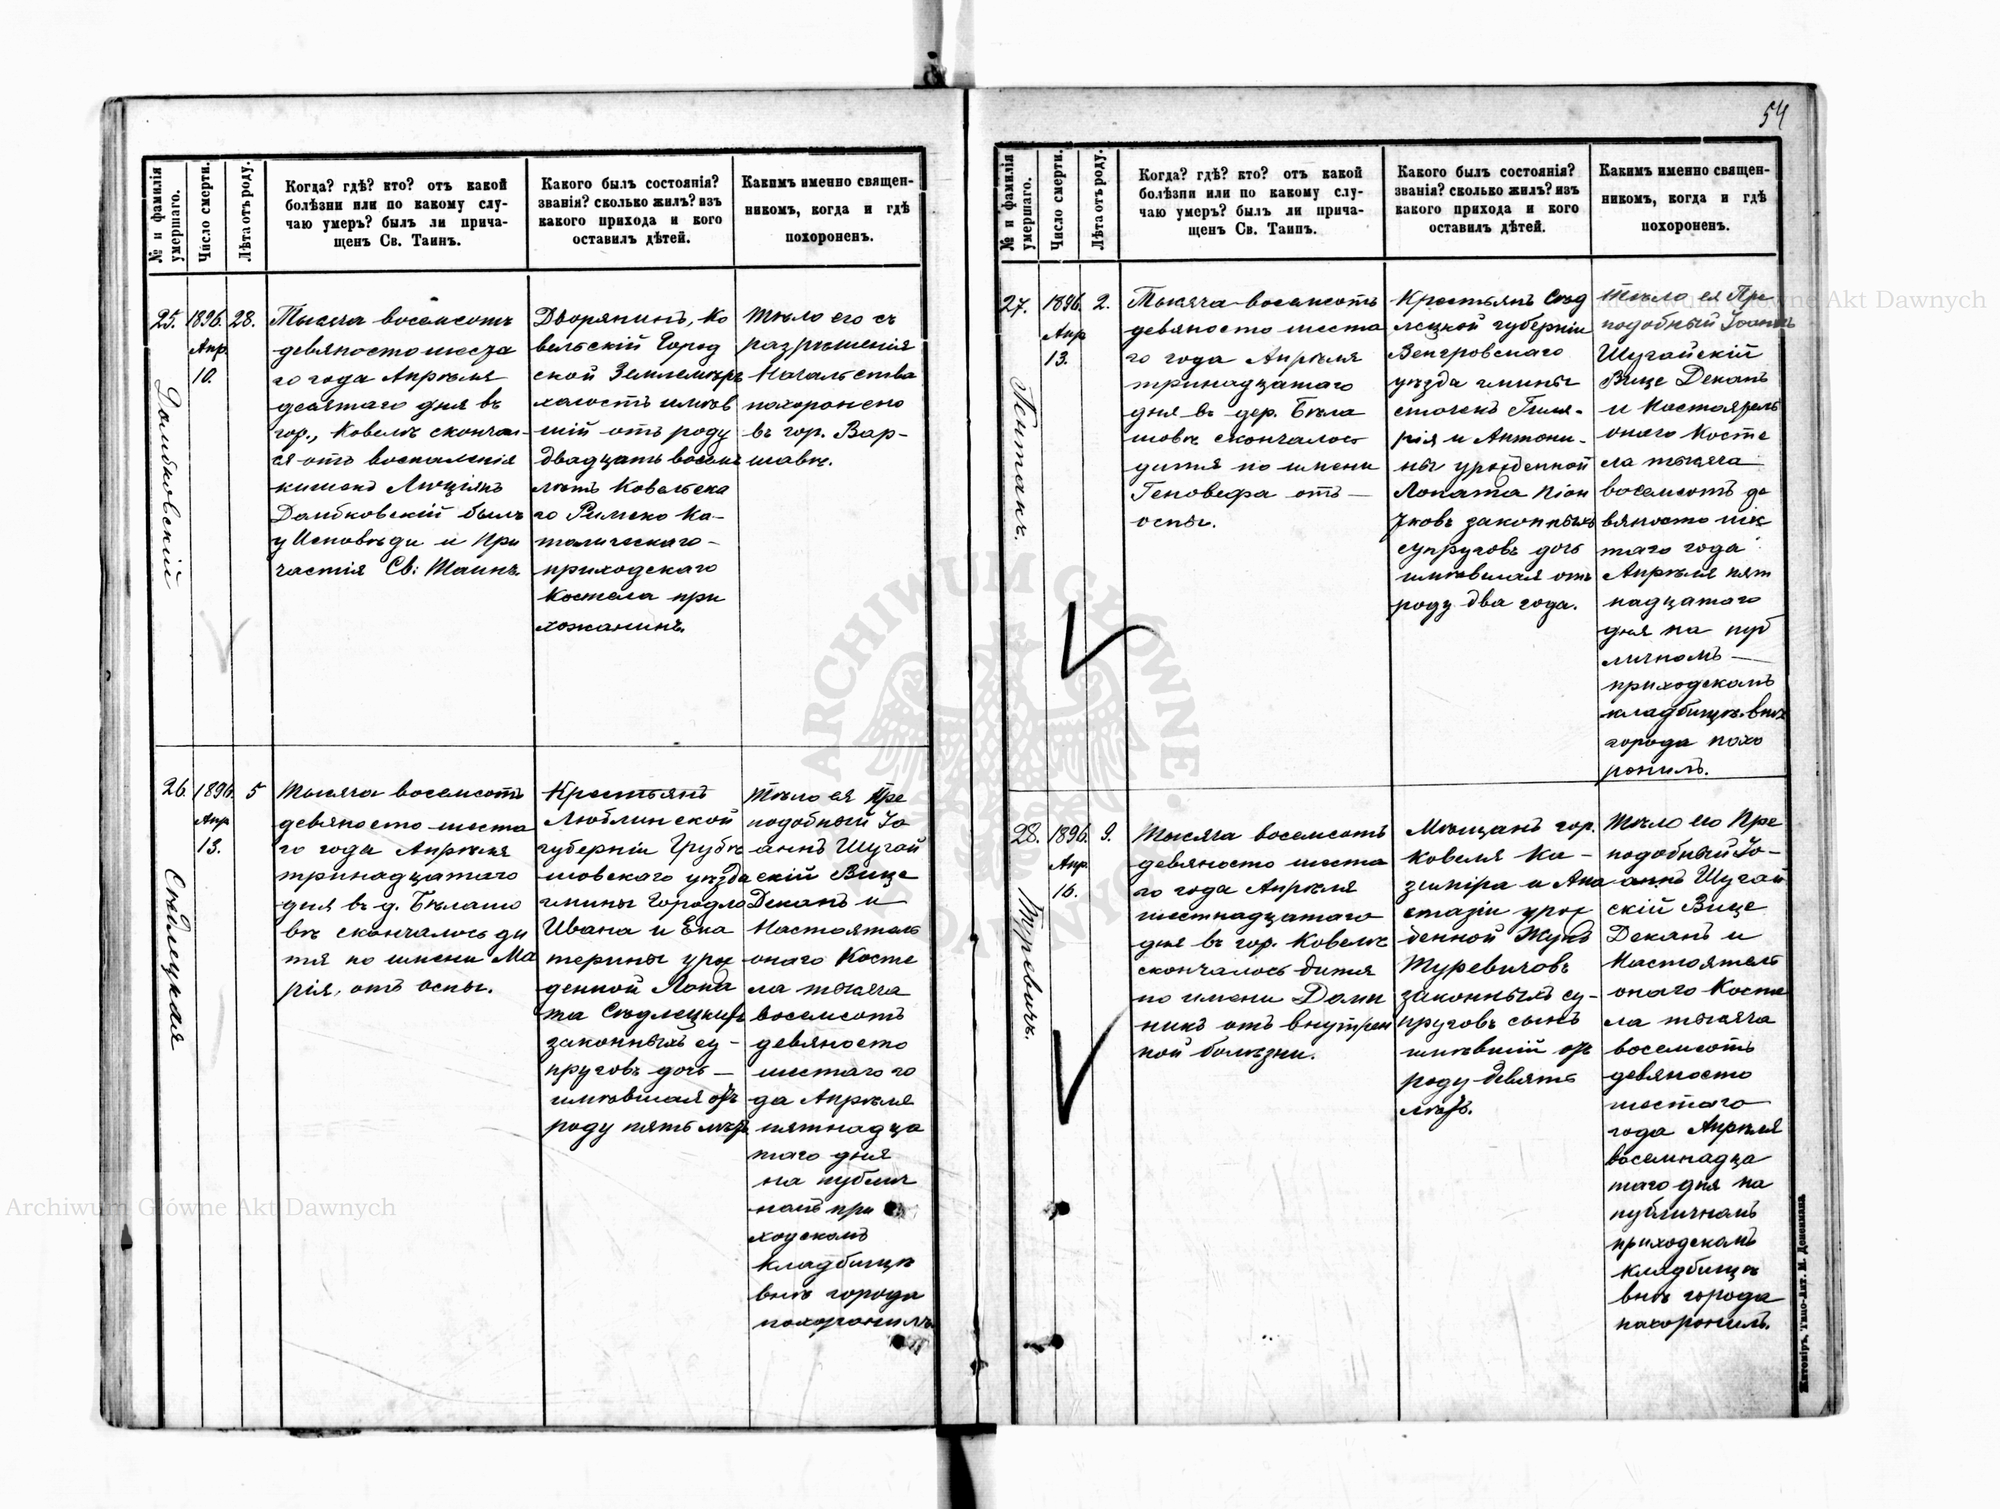 54
№ и фамилія умершаго.
Число смерти.
Лѣта отъ роду.
Когда? гдѣ? кто? отъ какой
болѣзни или по какому слу-
чаю умеръ? былъ ли прича-
щенъ Св. Таинъ.
Какого былъ состоянія?
званія? сколько жилъ? изъ
какого прихода и кого
оставилъ дѣтей.
Каким​ъ именно священ-
никомъ, когда и гдѣ
похороненъ.
25.
Домбковскій
1896.
Апр.
10.
28.
Тысяча восемсотъ
девяносто шеста
го года Апрѣля
десятаго дня въ
гор., Ковелѣ сконча-
ся отъ воспаленія
кишекъ Люціянъ
Домбковскій былъ
у Исповѣди и при
частія Св: Таинъ.
Дворянинъ, Ко
вельскій Город
ской Землемѣръ
холостъ имѣв
шій отъ роду
двадцать восемь
лѣтъ Ковельска
го Римско Ка-
толическаго-
приходскаго
Костела при
хожанинъ.
Тѣло его съ
разрѣшенія
Начальства
похоронено
въ гор. Вар-
шавѣ.
26.
Сѣдлецкая
1896.
Апр
13.
5
Тысяча восемсотъ
девяносто шеста
го года Апрѣля
тринадцатаго
дня въ д. Бѣлашо
вѣ скончалось ди
тя по имени Ма
рія, отъ оспы.
Крестьянъ
Люблинской
губерніи Грубѣ
шовскаго уѣзда
гмины Городло
Ивана и Ека
терины урож
денной Лопа
та Сѣдлецкихъ
законныхъ су-
пруговъ дочь—
имѣвшая отъ
роду пять лѣтъ
Тѣло ея Пре
подобный Іо
аннъ Шугай
скій Вице
Деканъ и
Настоятель
онаго Косте
ла тысяча
восемсотъ
девяносто
шестаго го
да Апрѣля
пятнадца
таго дня
на публич
номъ при
ходскомъ
кладбищѣ
внѣ города
похоронилъ
№ и фамилія умершаго.
Число смерти.
Лѣта отъ роду.
Когда? гдѣ? кто? отъ какой
болѣзни или по какому слу-
чаю умеръ? былъ ли прича-
щенъ Св. Таинъ.
Какого былъ состоянія?
званія? сколько жилъ? изъ
какого прихода и кого
оставилъ дѣтей.
Какимъ именно священ-
никомъ, когда и гдѣ
похороненъ.
27.
1896.
Апр
13.
2.
Тысяча восемсотъ
девяносто шеста
го года Апрѣля
тринадцатаго
дня въ дер. Бѣла
шовѣ скончалось
дитя по имени
Геновефа отъ—
оспы.
Крестьянъ Сѣд
лецкой губерніи
Венгровскаго
уѣзда гмины
Гиля-
рія и Антони-
ны урожденной
Лопата
законныхъ
супруговъ дочь
имѣвшая отъ
роду два года.
Тѣло ея Пре
подобный Іоаннъ
Шугайскій
Вице Деканъ
и Настоятель
онаго Косте
ла тысяча
восемсотъ де
вяносто шес
таго года
Апрѣля пят
надцатаго
дня на пуб
личномъ—
приходскомъ
кладбищѣ внѣ
города похо
ронилъ.
28.
Туревичъ.
1896.
Апр.
16.
9.
Тысяча восемсотъ
девяносто шеста
го года Апрѣля
шестнадцатаго
дня въ гор. Ковелѣ
скончалось дитя
по имени Доми
никъ отъ внутрен
ной болѣзни.
Мѣщанъ гор.
Ковеля Ка-
зиміра и Ана
стазіи урож
денной Жукъ
Туревичовъ
законныхъ су-
пруговъ сынъ
имѣвшій отъ
роду девять
лѣтъ.
Тѣло его Пре
подобный Іо-
аннъ Шугай
скій Вице
Деканъ и
Настоятель
онаго Косте
ла тысяча
восемсотъ
девяносто
шестаго
года Апрѣля
восемнадца
таго дня на
публичномъ
приходскомъ
кладбищѣ
внѣ города
похоронилъ.
Житоміръ, Типо-Лит. М. Дененмана
Archiwum Główne Akt Dawnych
Archiwum Główne Akt Dawnych
ARCHIWUM GŁÓWNE AKT DAWNYCH